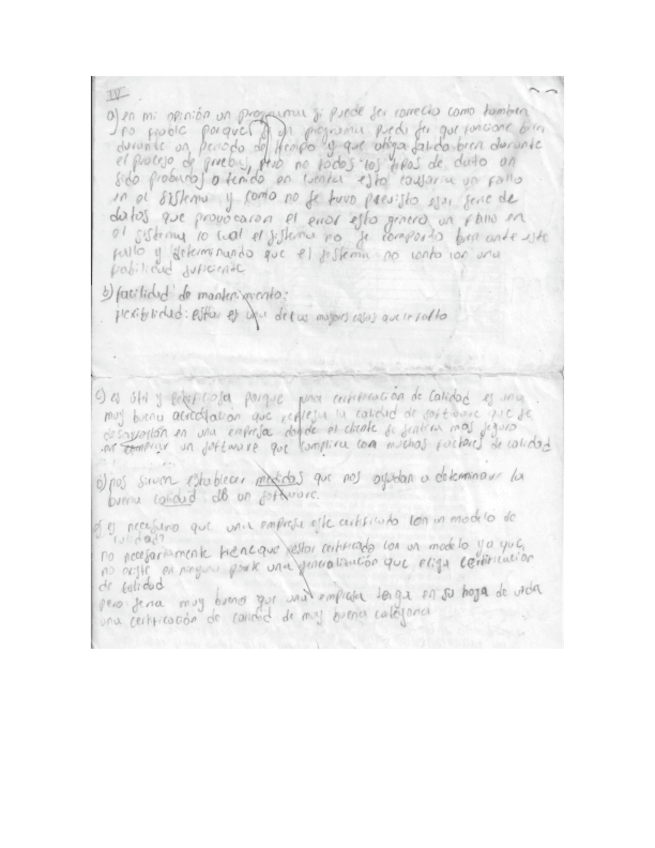 IV
a) en mi opinión un programa si puede ser correcto como tambien
no fiable porque un programa puede ser que funcione bien
durante un periodo de tiempo y que salido bien durante
el proceso de pruebas, pero no todos los tipos de dato an
sido probados o tenido en cuenta esto causaria un fallo
en el sistema y como no se tuvo previsto esa serie de
datos que provocaron el error esto genero un fallo en
el sistema lo cual el sistema no se comporto bien ante este
fallo y determinando que el sistema no conto con una
fiabilidad suficiente
b) facilidad de mantenimiento:
flexibilidad: esta es una de las mayores cosas que le falto
c) es útil y beneficiosa porque una certificación de calidad es una
muy buena acreditación que refleja la calidad de software que se
desarrollan en una empresa donde el cliente se sentira mas seguro
un software que cumplira con muchos factores de calidad
nos sirven establecer medidas que nos ayudan a determinar la
buena calidad de un software.
es necesario que una empresa este certificada con un modelo de
calidad?
no necesariamente tiene que estar certificado con un modelo ya que,
no existe en ninguna parte una generalización que exija certificacion
de calidad
pero seria muy bueno que una empresa tenga en su hoja de vida
una certificación de calidad de muy buena categoria